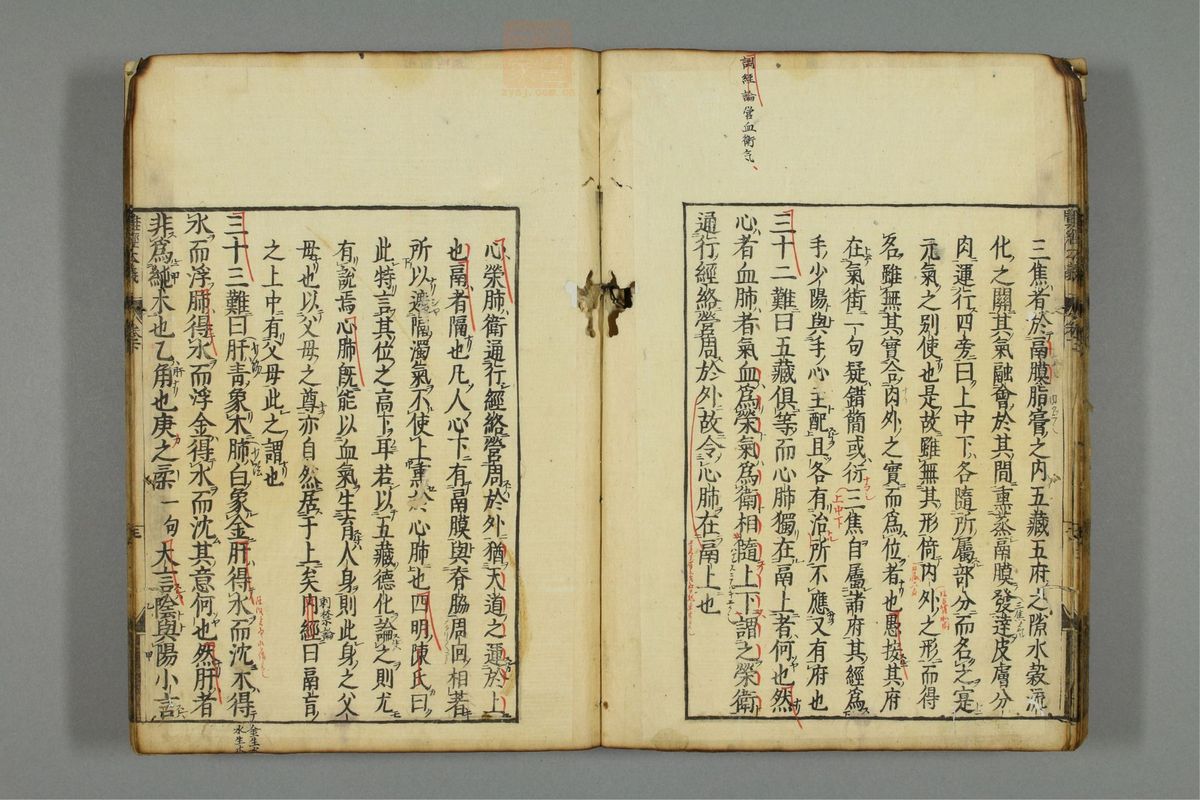 調經論營血衛氣
三焦者於鬲膜脂膏之内五藏五府之隙水穀流
化之關其氣融會於其間熏蒸鬲膜發達皮膚分
肉運行四旁曰上中下各隨所屬部分而名之寔
元氣之別使也是故雖無其形倚内外之形而得
名雖無其實合内外之實而爲位者也愚按其府
在氣街一句疑錯簡或衍三焦自屬諸府其經爲
手少陽與手心主配且各有治所不應又有府也
三十二難曰五藏俱等而心肺獨在鬲上者何也然
心者血肺者氣血爲榮氣爲衛相隨上下謂之榮衛
通行經絡營周於外故令心肺在鬲上也
心榮肺衛通行經絡營周於外猶天道之運於上
也鬲者隔也凡人心下有鬲膜與脊脇周回相著
所以遮隔濁氣不使上熏於心肺也四明陳氏曰
此特言其位之高下耳若以五藏德化論之則尤
有說焉心肺既能以血氣生育人身則此身之父
母也以父母之尊亦自然居于上矣内經曰鬲肓
刺禁論
之上中有父母此之謂也
三十三難曰肝青象木肺白象金肝得水而沈木得
水而浮肺得水而浮金得水而沈其意何也然肝者
非爲純木也乙角也庚之柔一句大言陰與陽小言